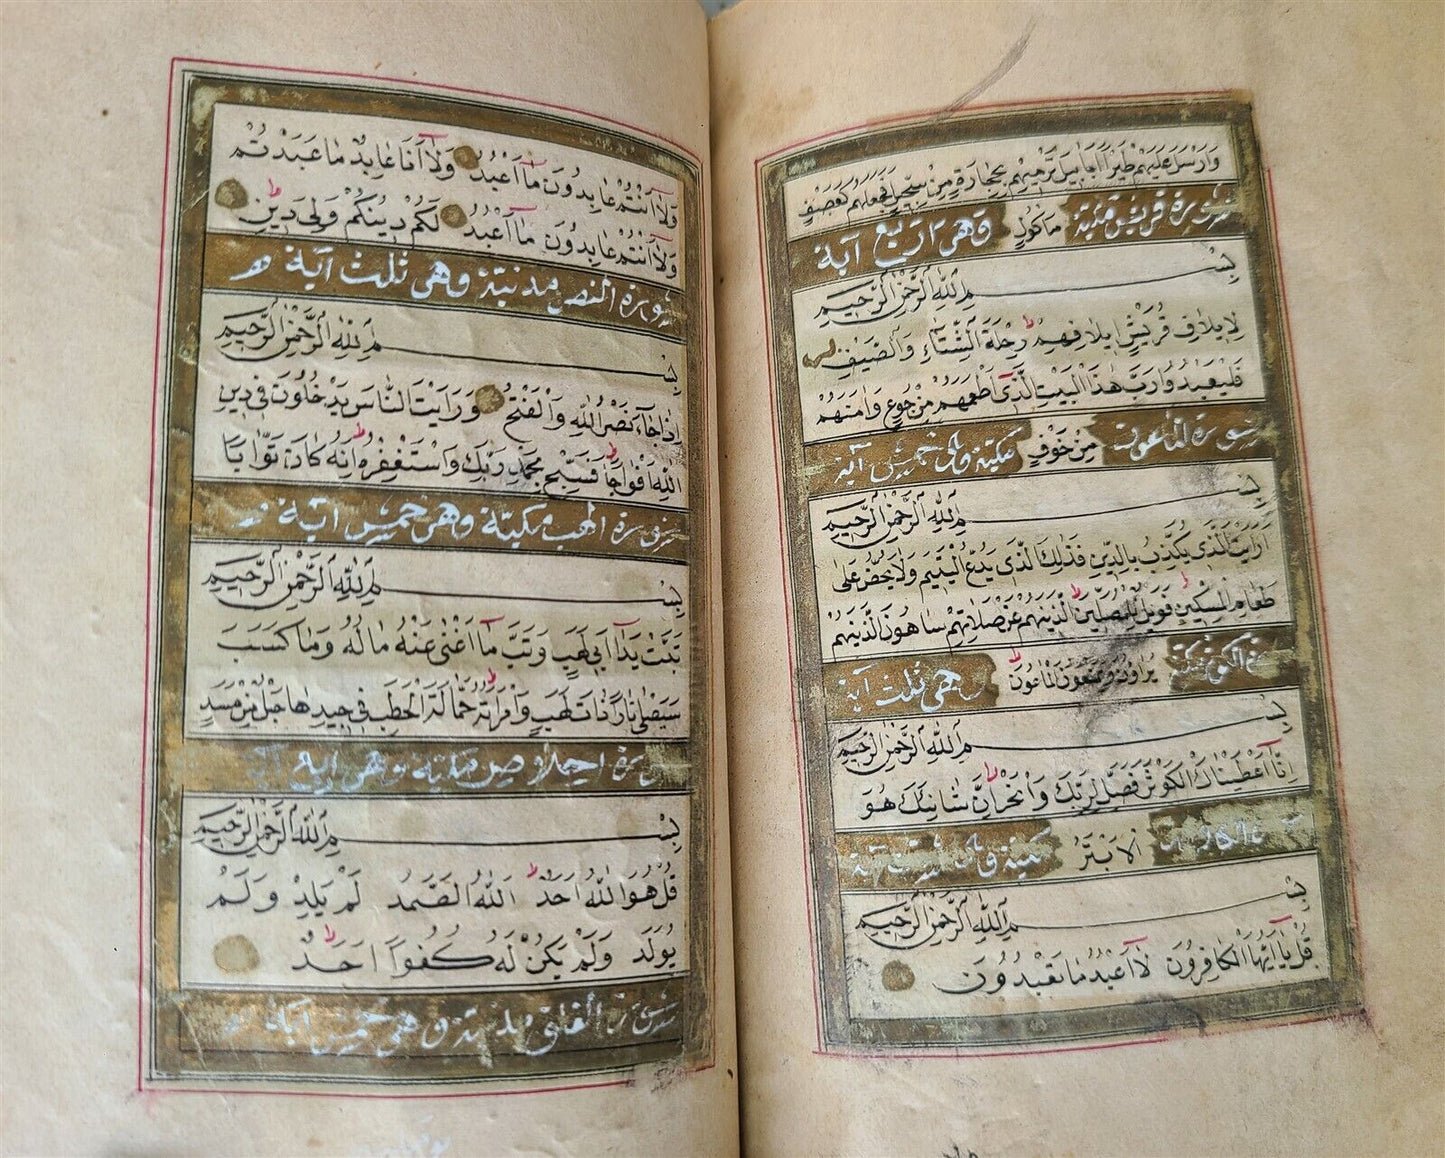 وَاَرْسَلَ عَلَيْهِمْ طَيْرًا اَبَابِيلَ تَرْمِيهِمْ بِحِجَارَةٍ مِنْ سِجِّيلٍ فَجَعَلَهُمْ كَعَصْفٍ
سورة قريش مكية مَاْكُولٍ وهى اربع آية
بِسْمِ اللهِ الرَّحْمٰنِ الرَّحِيمِ
لِاِيلَافِ قُرَيْشٍ اِيلَافِهِمْ رِحْلَةَ الشِّتَاءِ وَالصَّيْفِ
فَلْيَعْبُدُوا رَبَّ هٰذَا الْبَيْتِ الَّذِى اَطْعَمَهُمْ مِنْ جُوعٍ وَاٰمَنَهُمْ
سورة الماعون مِنْ خَوْفٍ مكية وهى خمس آية
بِسْمِ اللهِ الرَّحْمٰنِ الرَّحِيمِ
اَرَاَيْتَ الَّذِى يُكَذِّبُ بِالدِّينِ فَذٰلِكَ الَّذِى يَدُعُّ الْيَتِيمَ وَلَا يَحُضُّ عَلٰى
طَعَامِ الْمِسْكِينِ فَوَيْلٌ لِلْمُصَلِّينَ الَّذِينَ هُمْ عَنْ صَلَاتِهِمْ سَاهُونَ الَّذِينَ هُمْ
الكوثر مكية يُرَاؤُنَ وَيَمْنَعُونَ الْمَاعُونَ وهى ثلث آية
بِسْمِ اللهِ الرَّحْمٰنِ الرَّحِيمِ
اِنَّا اَعْطَيْنَاكَ الْكَوْثَرَ فَصَلِّ لِرَبِّكَ وَانْحَرْ اِنَّ شَانِئَكَ هُوَ
الكافرون الْاَبْتَرُ مكية وهى ست آية
بِسْمِ اللهِ الرَّحْمٰنِ الرَّحِيمِ
قُلْ يَا اَيُّهَا الْكَافِرُونَ لَا اَعْبُدُ مَا تَعْبُدُونَ
وَلَا اَنْتُمْ عَابِدُونَ مَا اَعْبُدُ وَلَا اَنَا عَابِدٌ مَا عَبَدْتُمْ
وَلَا اَنْتُمْ عَابِدُونَ مَا اَعْبُدُ لَكُمْ دِينُكُمْ وَلِىَ دِينِ
سورة النصر مدنية وهى ثلث آية
بِسْمِ اللهِ الرَّحْمٰنِ الرَّحِيمِ
اِذَا جَاءَ نَصْرُ اللهِ وَالْفَتْحُ وَرَاَيْتَ النَّاسَ يَدْخُلُونَ فِى دِينِ
اللهِ اَفْوَاجًا فَسَبِّحْ بِحَمْدِ رَبِّكَ وَاسْتَغْفِرْهُ اِنَّهُ كَانَ تَوَّابًا
سورة لهب مكية وهى خمس آية
بِسْمِ اللهِ الرَّحْمٰنِ الرَّحِيمِ
تَبَّتْ يَدَا اَبِى لَهَبٍ وَتَبَّ مَا اَغْنٰى عَنْهُ مَالُهُ وَمَا كَسَبَ
سَيَصْلٰى نَارًا ذَاتَ لَهَبٍ وَامْرَاَتُهُ حَمَّالَةَ الْحَطَبِ فِى جِيدِهَا حَبْلٌ مِنْ مَسَدٍ
سورة اخلاص مكية وهى آية
بِسْمِ اللهِ الرَّحْمٰنِ الرَّحِيمِ
قُلْ هُوَ اللهُ اَحَدٌ اَللهُ الصَّمَدُ لَمْ يَلِدْ وَلَمْ
يُولَدْ وَلَمْ يَكُنْ لَهُ كُفُوًا اَحَدٌ
سورة الفلق مدنية وهى خمس آية